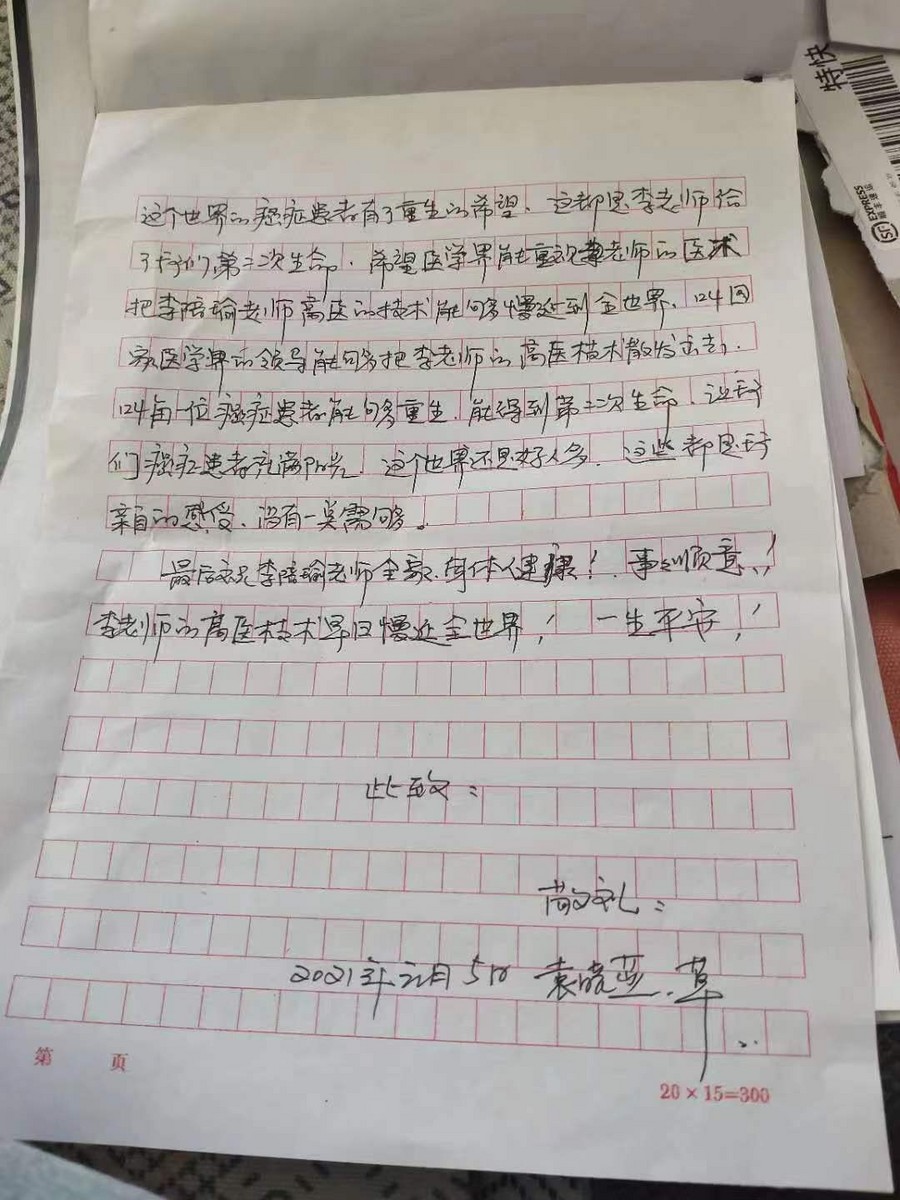 特快
SF EXPRESS
这个世界的癌症患者有了重生的希望、这都思李老师给
了我们第二次生命、希望医学界能重视李老师的医术
把李陪瑜老师高医的技术能够慢延到全世界、024国
家医学界的领导能够把李老师的高医技术散发出去、
024每一位癌症患者能够多重生、能得到第二次生命、让我
们癌症患者充满阳光、这个世界还是好人多、这些都思我
亲自的感受、没有一点需
最后祝李陪瑜老师全家、身体健康！、事顺意！
李老师的高医技术早日慢延全世界！一生平安！
此致：
敬礼：
2021年元月5日 袁晓亚、草
第 页
20×15=300